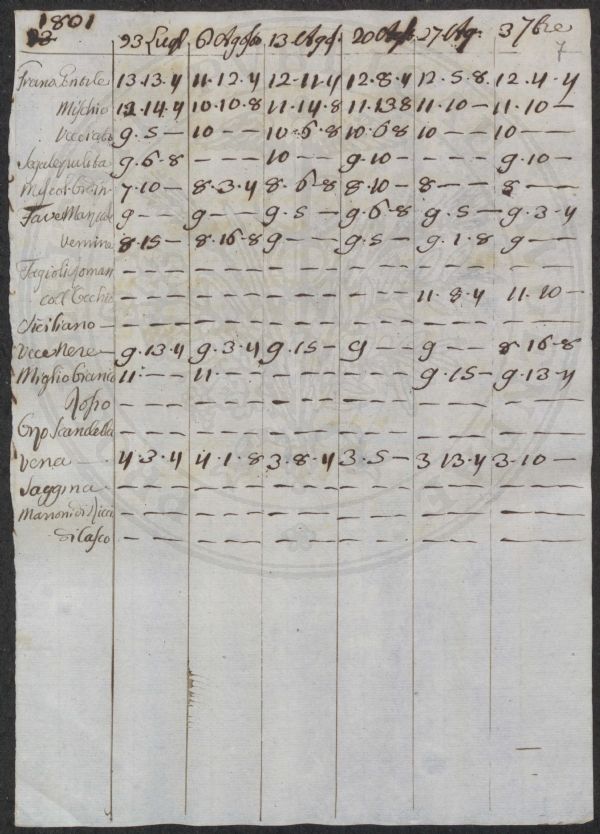 1801
23 Lugl. 6 Agosto 13 Ags. 20 Ags. 27 Ag. 3 7bre
7
Grano Gentile 13.13.4 11.12.4 12.11.4 12.8.4 12.5.8 12.4.4
Mischio 12.14.4 10.10.8 11.14.8 11.13.8 11.10 — 11.10 —
Vecciato 9.5 — 10 — — 10.6.8 10.6.8 10 — — 10 — —
Segale pulita 9.6.8 — — — 10 — — 9.10 — — — — 9.10 —
7.10 — 8.3.4 8.6.8 8.10 — 8 — — 8 — —
Fave 9 — — 9 — — 9.5 — 9.6.8 9.5 — 9.3.4
Vernina 8.15 — 8.16.8 9 — — 9.5 — 9.1.8 9 — —
Fagioli Roman — — — — — — — — — — — — — — — — — —
coll'Occhio — — — — — — — — — — — — 11.8.4 11.10 —
Siciliano — — — — — — — — — — — — — — — — — —
Vecce Nere 9.13.4 9.3.4 9.15 — 9 — — 9 — — 8.16.8
Miglio bianco 11 — — 11 — — — — — — — — 9.15 — 9.13.4
Rosso — — — — — — — — — — — — — — — — — —
Orzo Scandella — — — — — — — — — — — — — — — — — —
Vena 4.3.4 4.1.8 3.8.4 3.5 — 3.13.4 3.10 —
Saggina — — — — — — — — — — — — — — — — — —
Marroni di — — — — — — — — — — — — — — — — — —
di — — — — — — — — — — — — — — — — — —